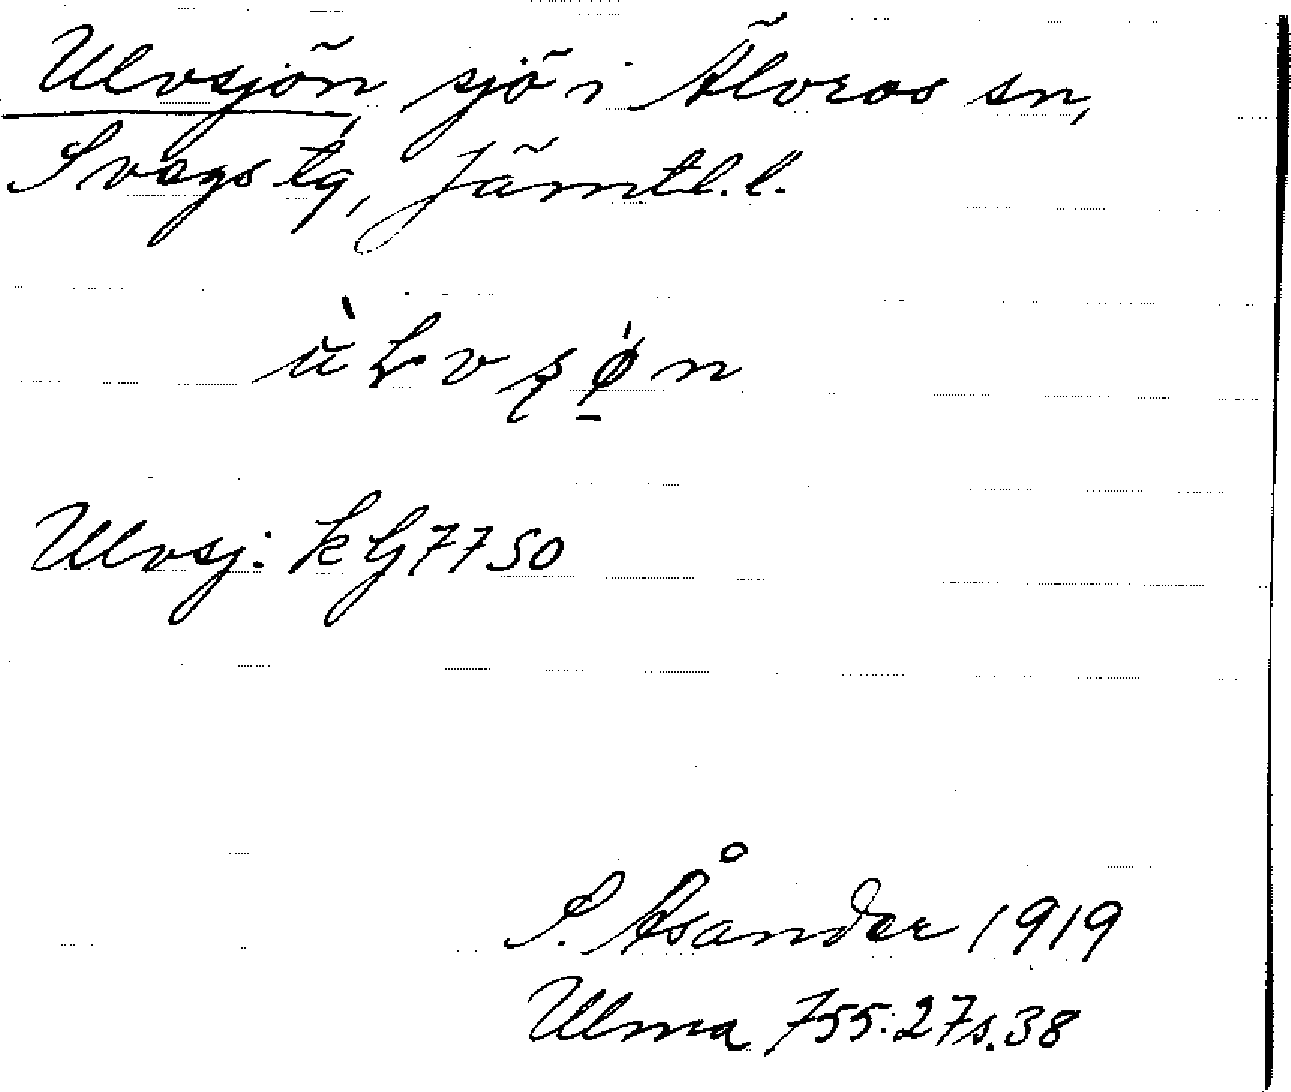 Ulvsjön sjö i Älvros sn,
Svegs tg, Jämtl.l.
Ulvsj: kG7750
S. Åsander 1919
Ulma 755:27 s.38